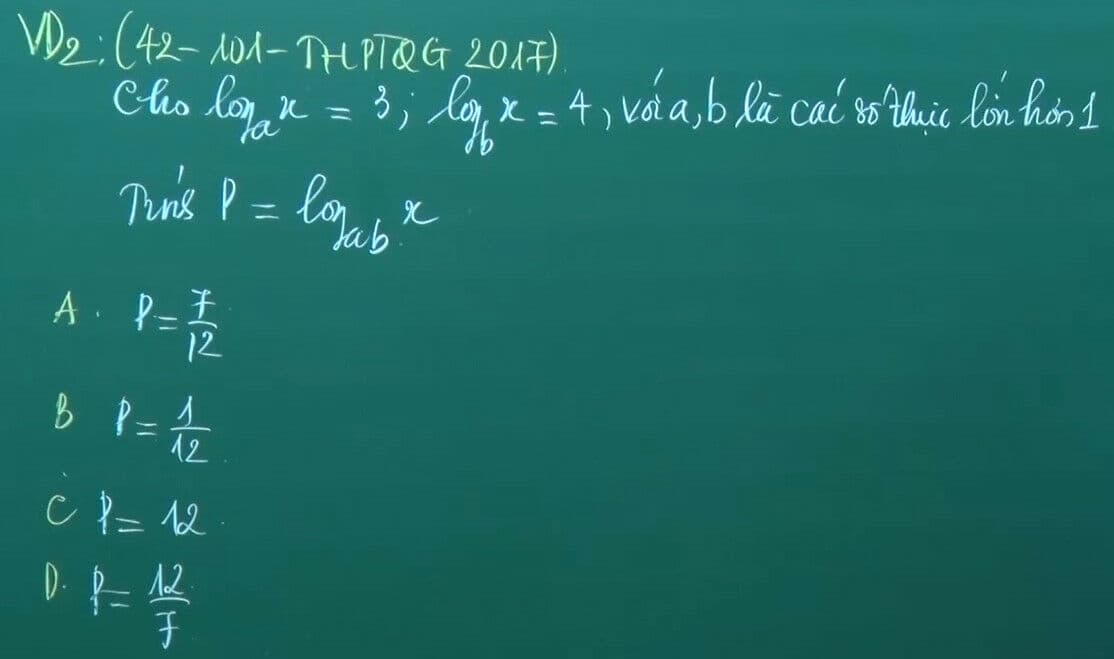 VD2: (42-101-THPTQG 2017).
Cho logₐ x = 3; log_b x = 4, với a, b là các số thực lớn hơn 1
Tính P = log_ab x
A. P = 7/12
B P = 1/12
C P = 12
D. P = 12/7